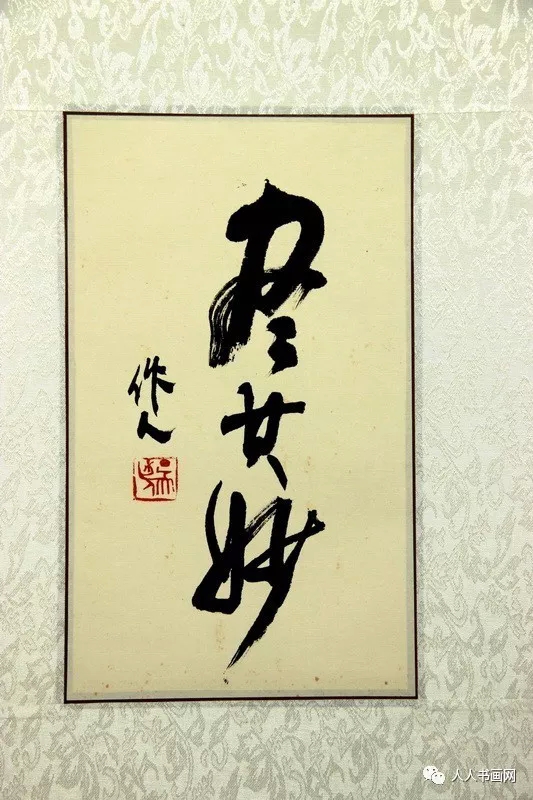 尽其妙
作人
人人书画网